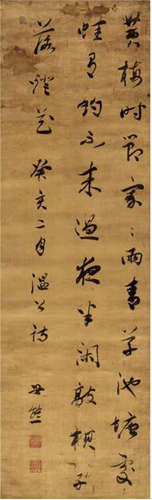 黄梅时节家々雨青草池塘处
蛙有约不来过夜半闲敲棋子
落灯花 癸亥二月温公诗